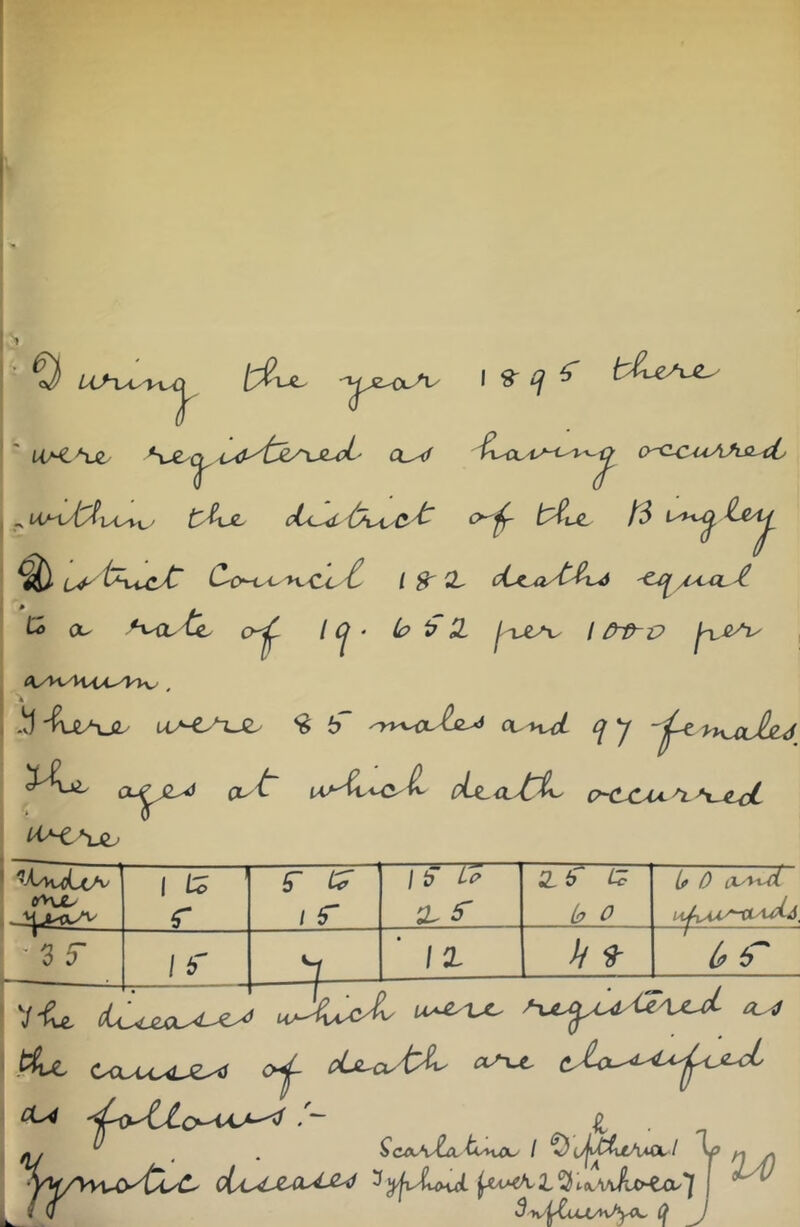 During the year 1895 there
were registered as having occurred
within the district of the Bingley
District Council 182 deaths equal
to a rate of 19.652 per 1000 per
annum.
There were 85 males and 97 females.
The ages at which death occurred
were
Under one year | 1 to 5 | 5 to 15 | 15 to 25 | 25 to 60 | 60 and upwards.
35 | 15 | 7 | 12 | 48 | 65
The diseases which were registered as
the causes of death are classified
as follows :-
Zymotic diseases Scarlatina 1 Diphtheria 1 Typhoid fever 2 Diarrhoea 7 Influenza 9 } 20